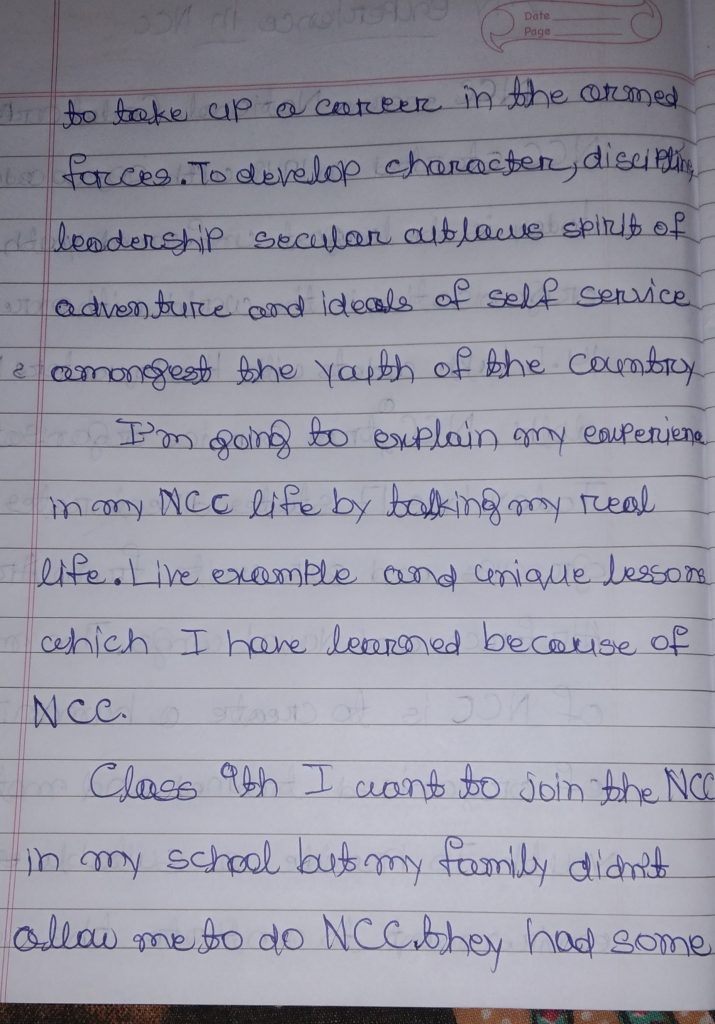 Date
Page
to take up a career in the armed
forces. To develop character, discipline
leadership secular outlaws spirit of
adventure and ideals of self service
amongest the youth of the country
I'm going to explain my experienc
in my NCC life by talking my real
life. Live example and unique lessons
which I have learned because of
NCC.
Class 9th I want to join the NCC
in my school but my family didn't
allow me to do NCC. they had some